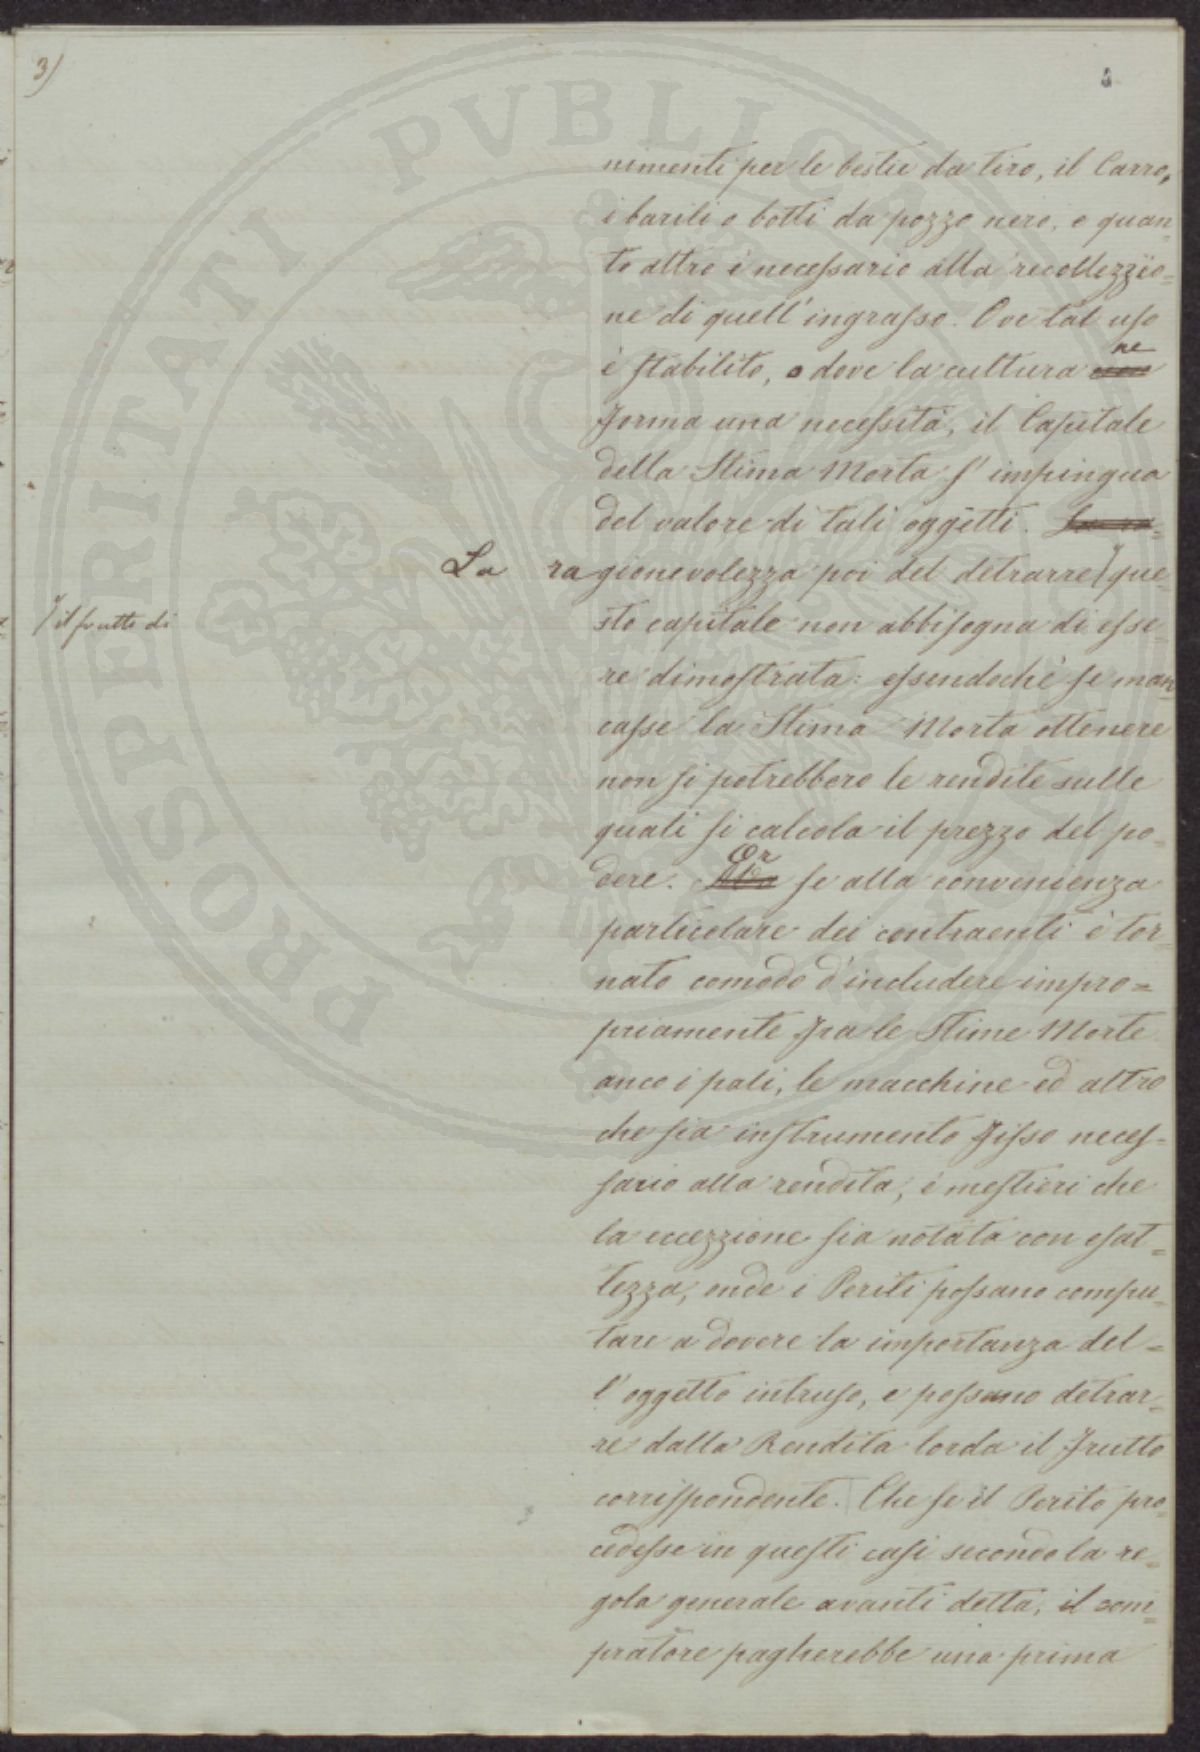 3)
nimenti per le bestie da tiro, il Carro,
i barili o botti da pozzo nero, e quan=
to altro è necessario alla recollezzio=
ne di quell'ingrasso. Ove tal uso
è stabilito, o dove la cultura ne
forma una necessità, il Capitale
della Stima Morta s'impingua
del valore di tali oggetti.
La ragionevolezza poi del detrarre que=
il frutto di
sto capitale non abbisogna di esse=
re dimostrata: essendochè se man
casse la Stima Morta ottenere
non si potrebbero le rendite sulle
quali si calcola il prezzo del po=
dere. Or se alla convenienza
particolare dei contraenti è tor=
nato comodo d'includere impro=
priamente fra le Stime Morte
anco i pali, le macchine ed altro
che sia instrumento fisso neces=
sario alla rendita, è mestieri che
la eccezzione sia notata con esat=
tezza, onde i Periti possano compu=
tare a dovere la importanza del=
l'oggetto intruso, e possano detrar=
re dalla Rendita lorda il frutto
corrispondente. Che se il Perito pro=
cedesse in questi casi secondo la re=
gola generale avanti detta, il com=
pratore pagherebbe una prima
PROSPERITATI PVBLICAE